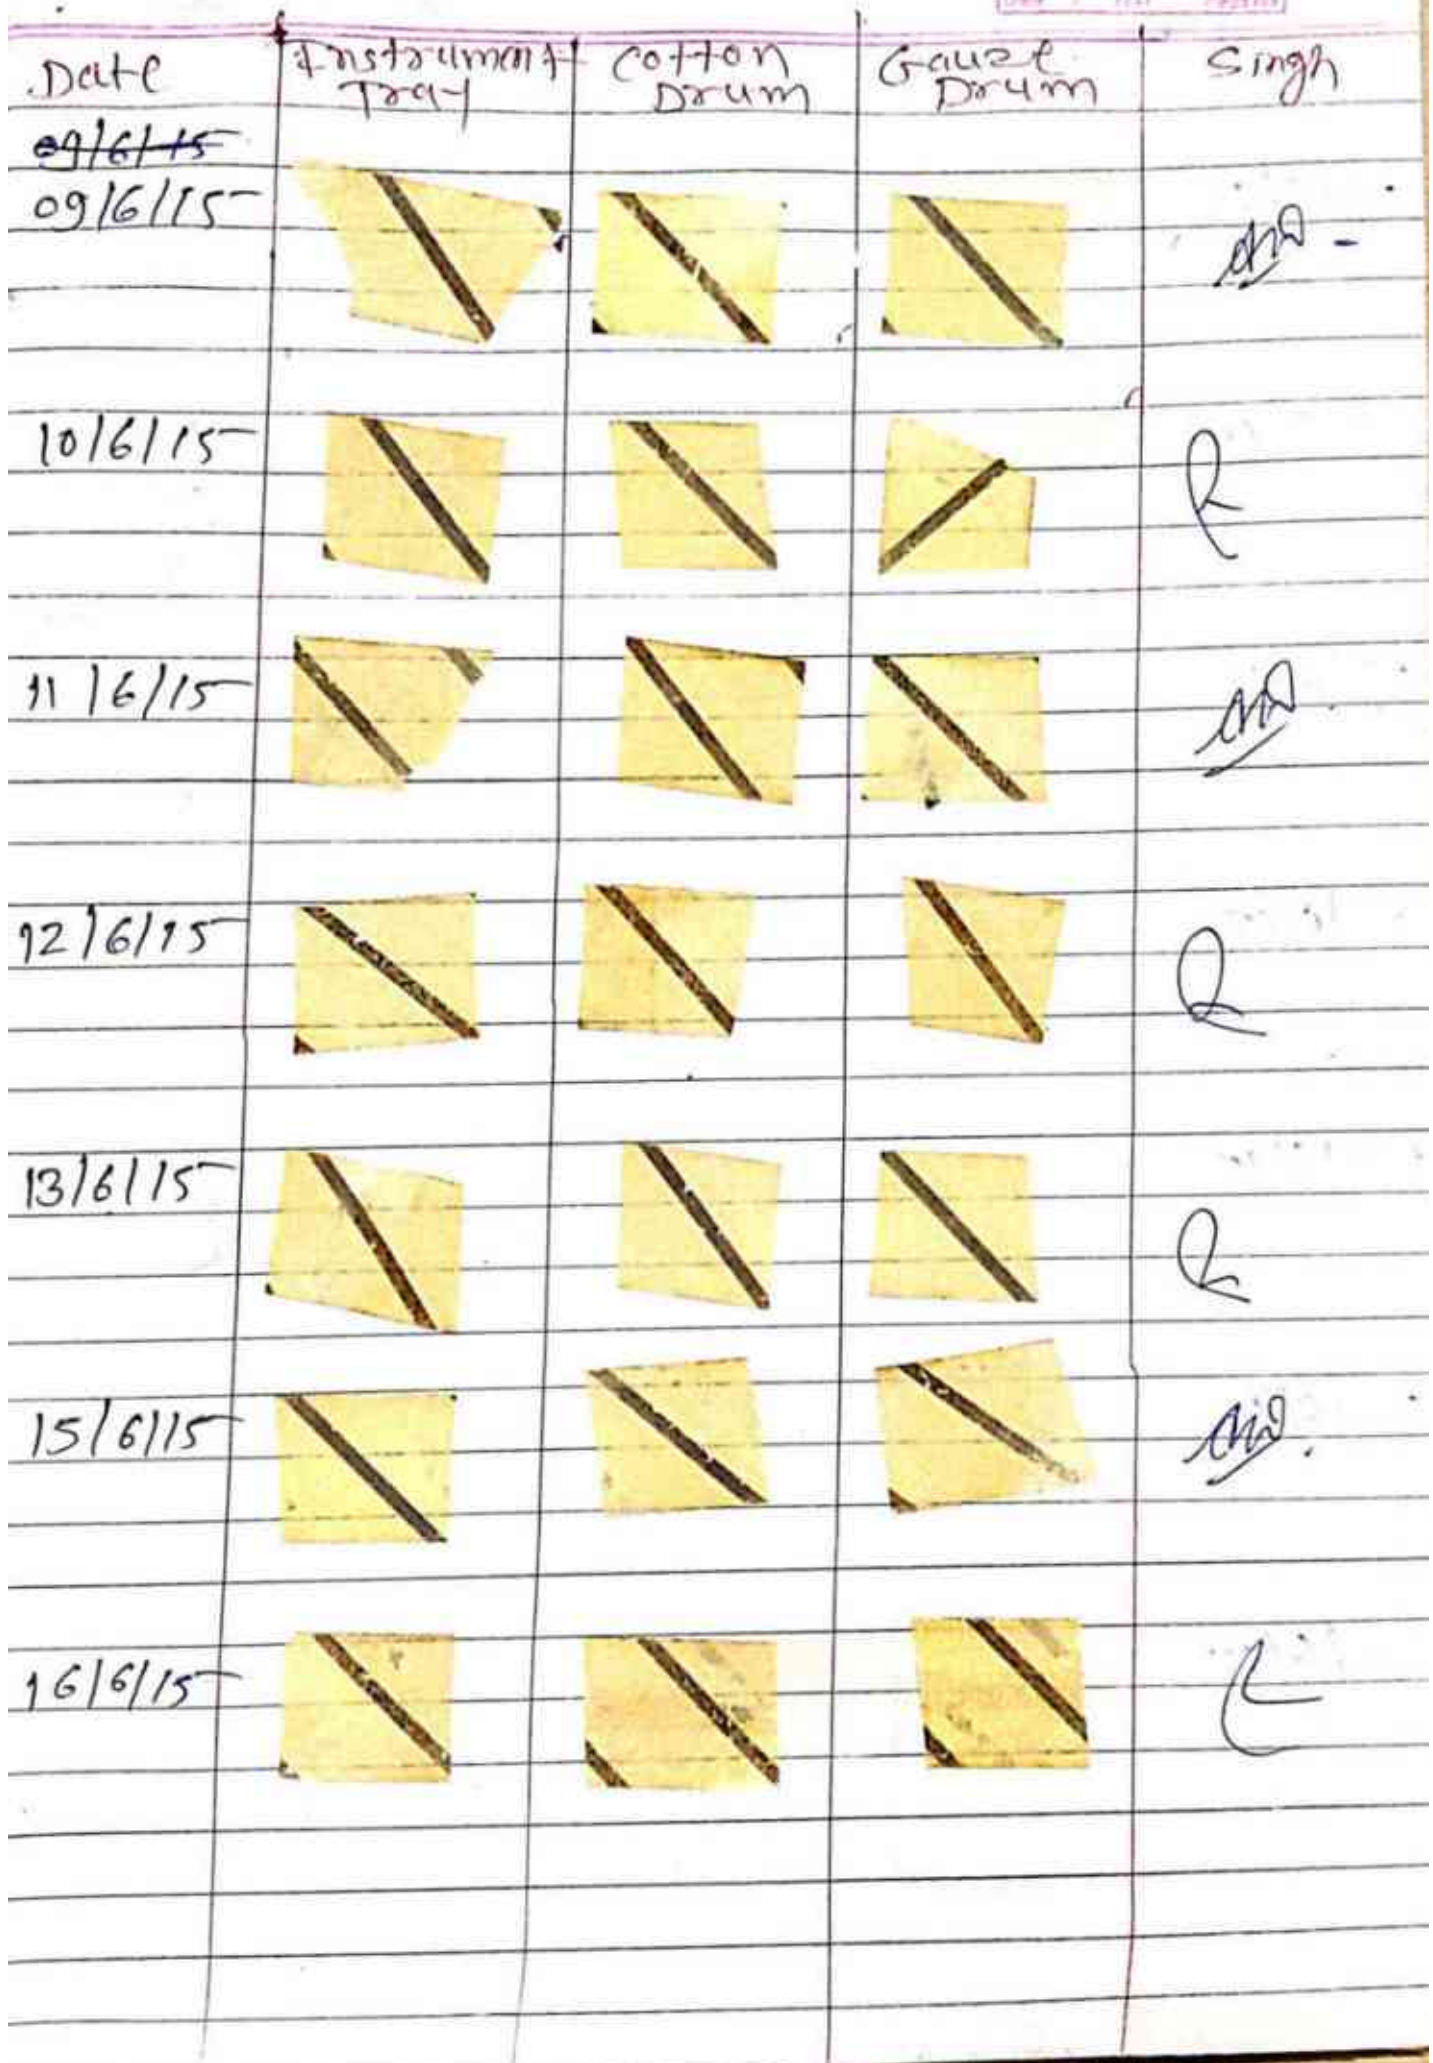 Date Instrument Tray Cotton Drum Gauze Drum Singh
09/6/15
09/6/15
10/6/15
11/6/15
12/6/15
13/6/15
15/6/15
16/6/15